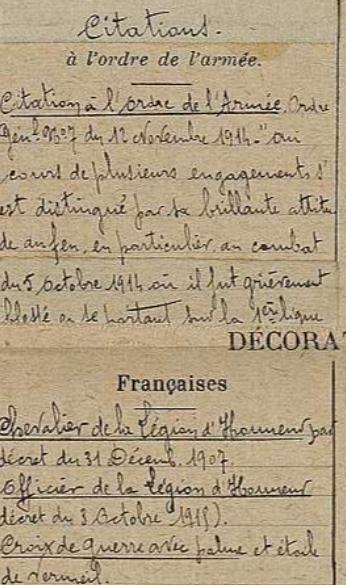 Citations.
à l'ordre de l'armée.
Citation à l'ordre de l'Armée. Ordre
Gén.l No 7 du 12 Novembre 1914 - "au
cours de plusieurs engagements s'
est distingué par sa brillante attitu
de au feu, en particulier, au combat
du 5 octobre 1914 où il fut grièvement
blessé en se portant sur la 1ère ligne
DÉCORAT
Françaises
Chevalier de la Légion d'Honneur par
décret du 31 Décemb. 1907.
Officier de la Légion d'Honneur
décret du 3 Octobre 1915).
Croix de guerre avec palme et étoile
de vermeil.